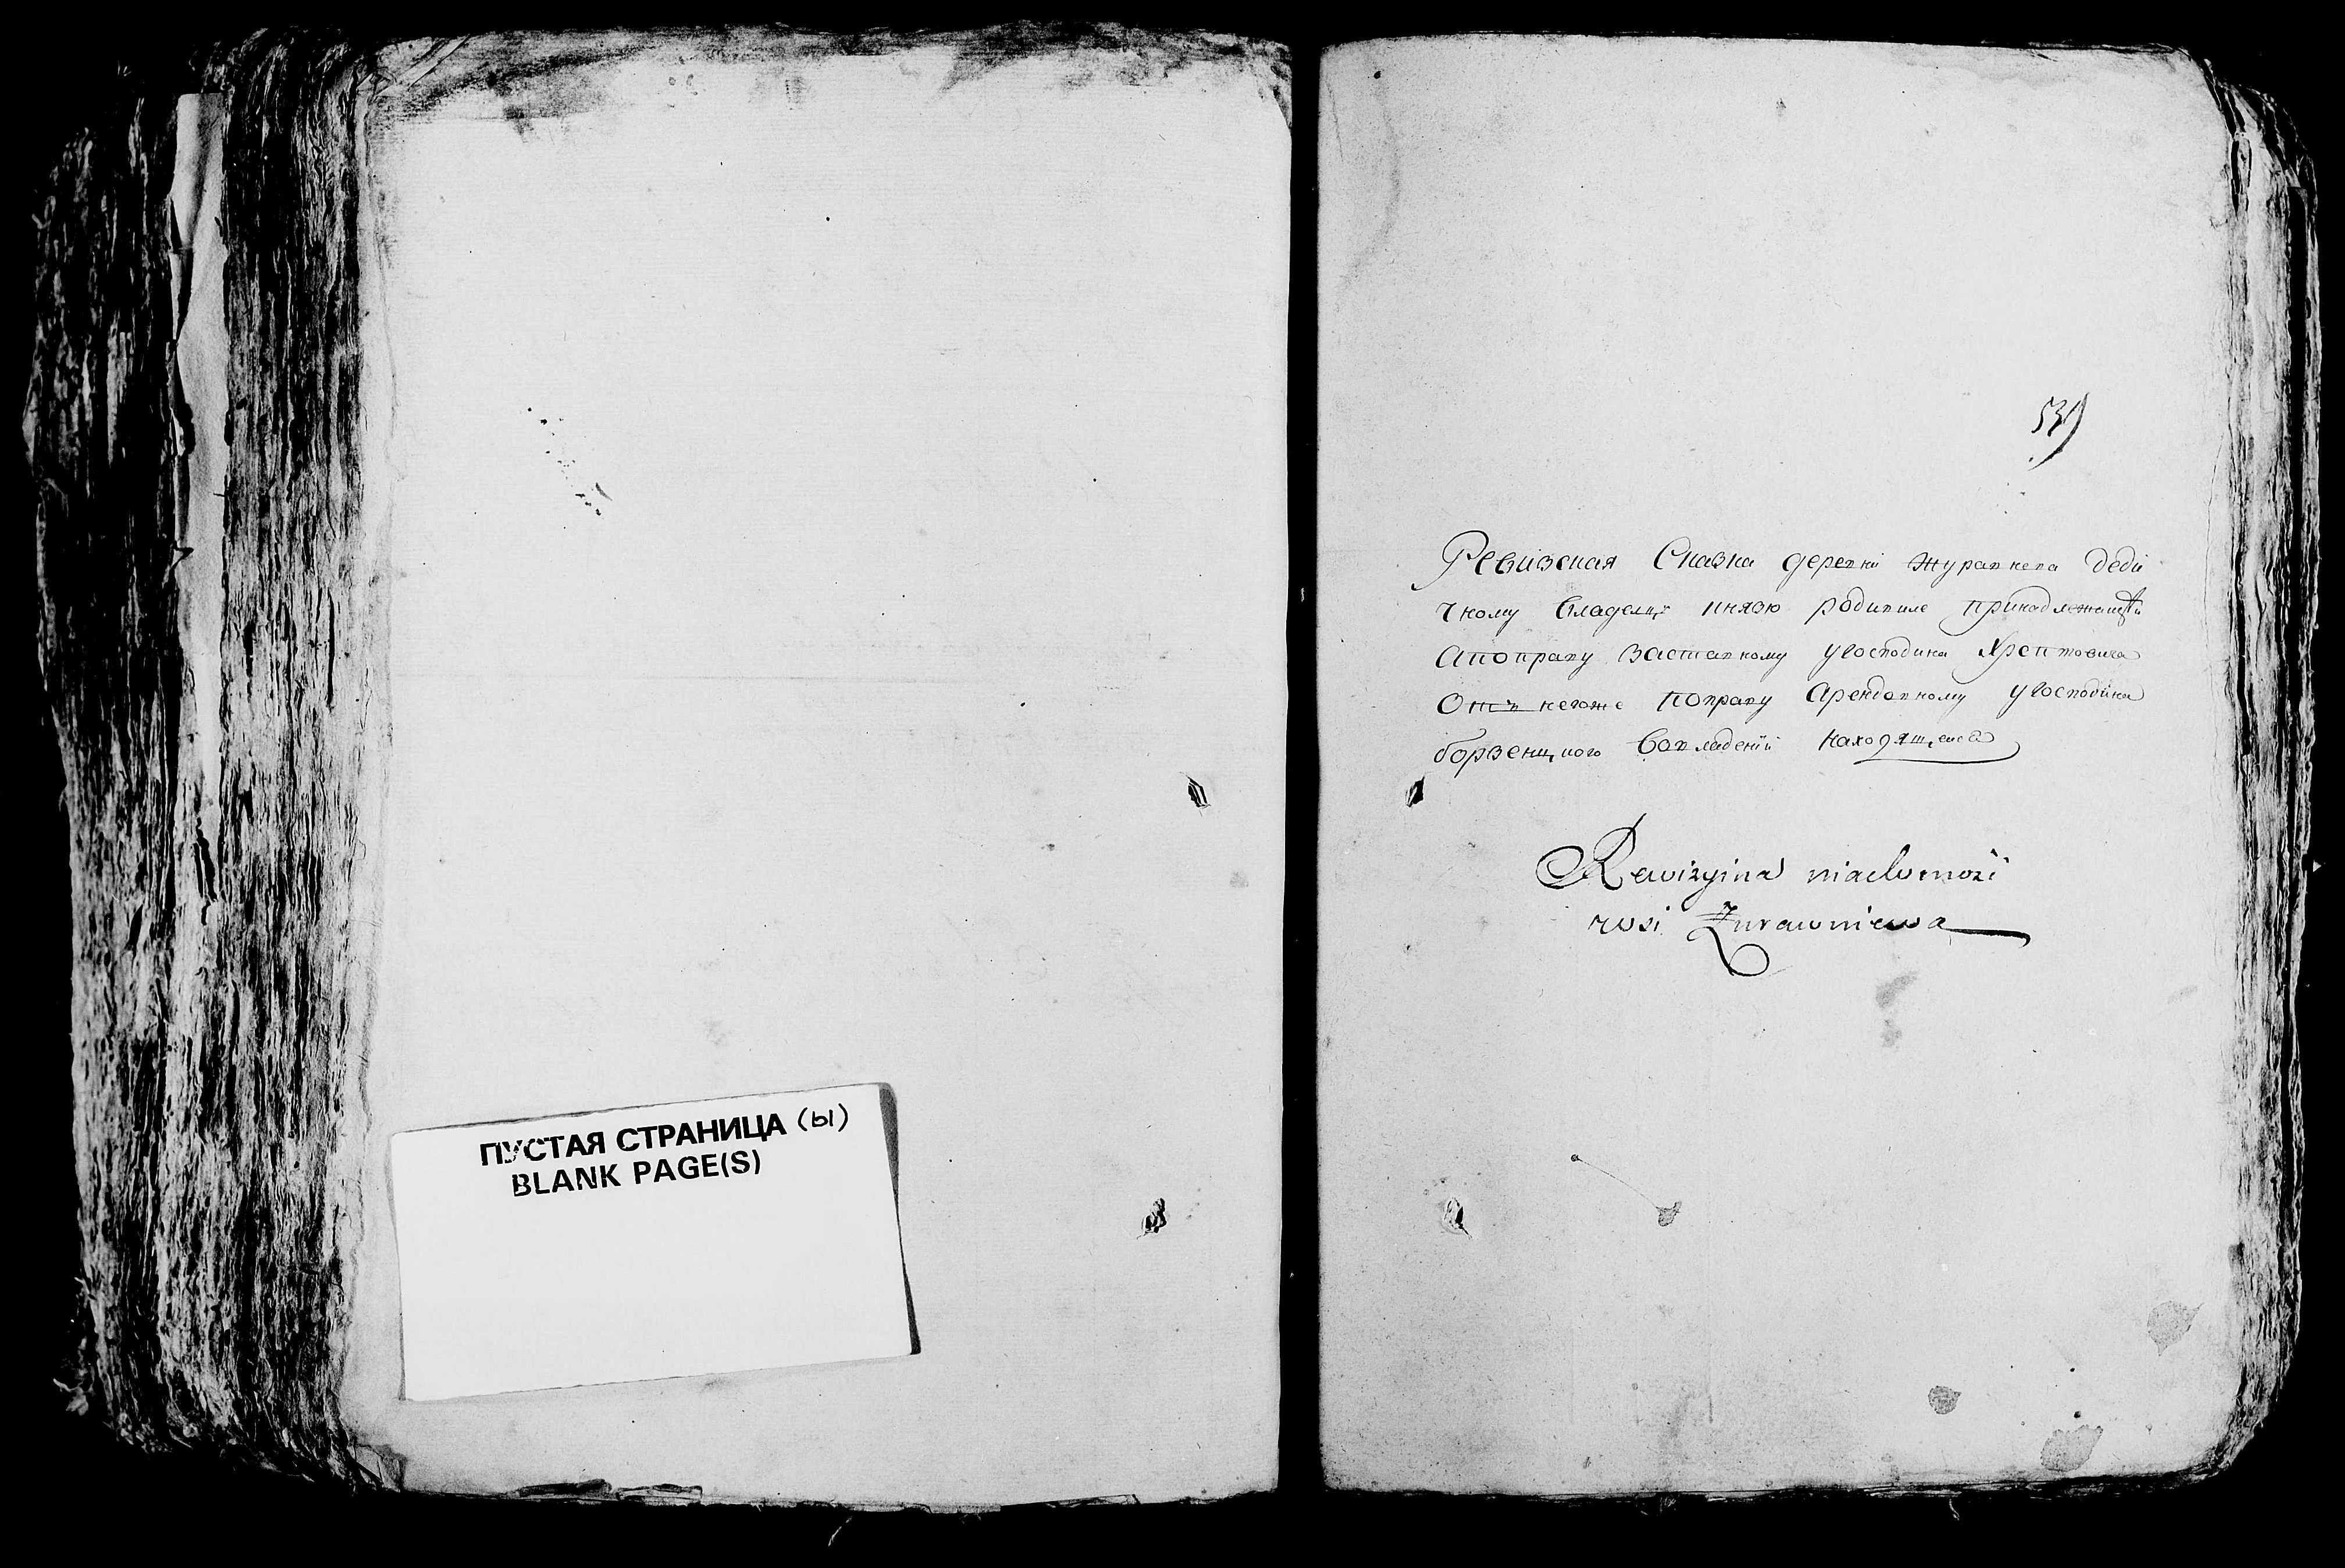 ПУСТАЯ СТРАНИЦА (ы)
BLANK PAGE(S)
Ревизская Сказка деревни Журавнева деди
чному владелцу князю принадлежащ
а по праву заставному у господина Хрептовича
Отъ негоже по праву Арендовному у господина
борзенцкого во владенїи находящеися
Rewizyina wiadomość
wsi Żurawniewa